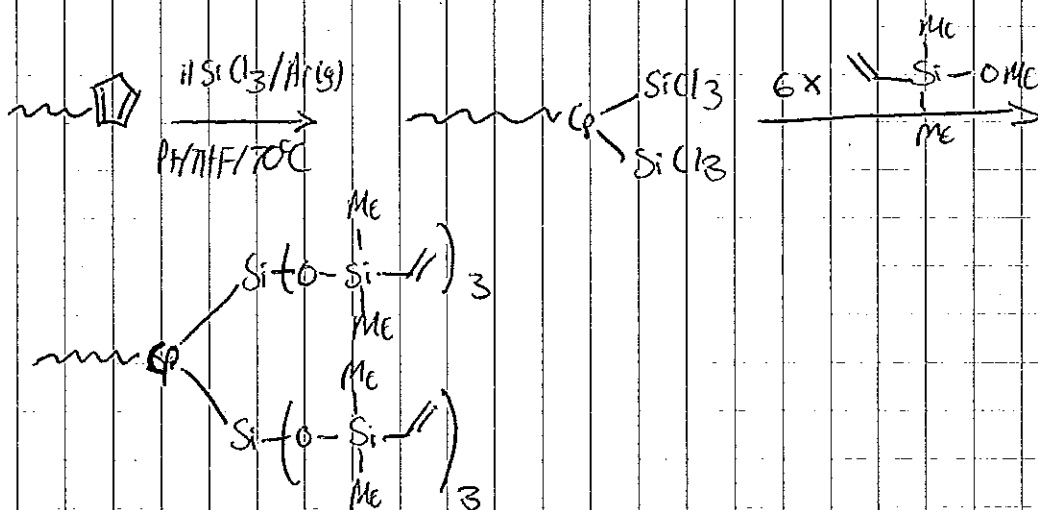 HSiCl3/Ar(g)
Pt/THF/70°C
Cp
SiCl3
SiCl3
6x
Me
Si-OMe
Me
Me
Si(O-Si)3
Me
Cp
Me
Si(O-Si)3
Me